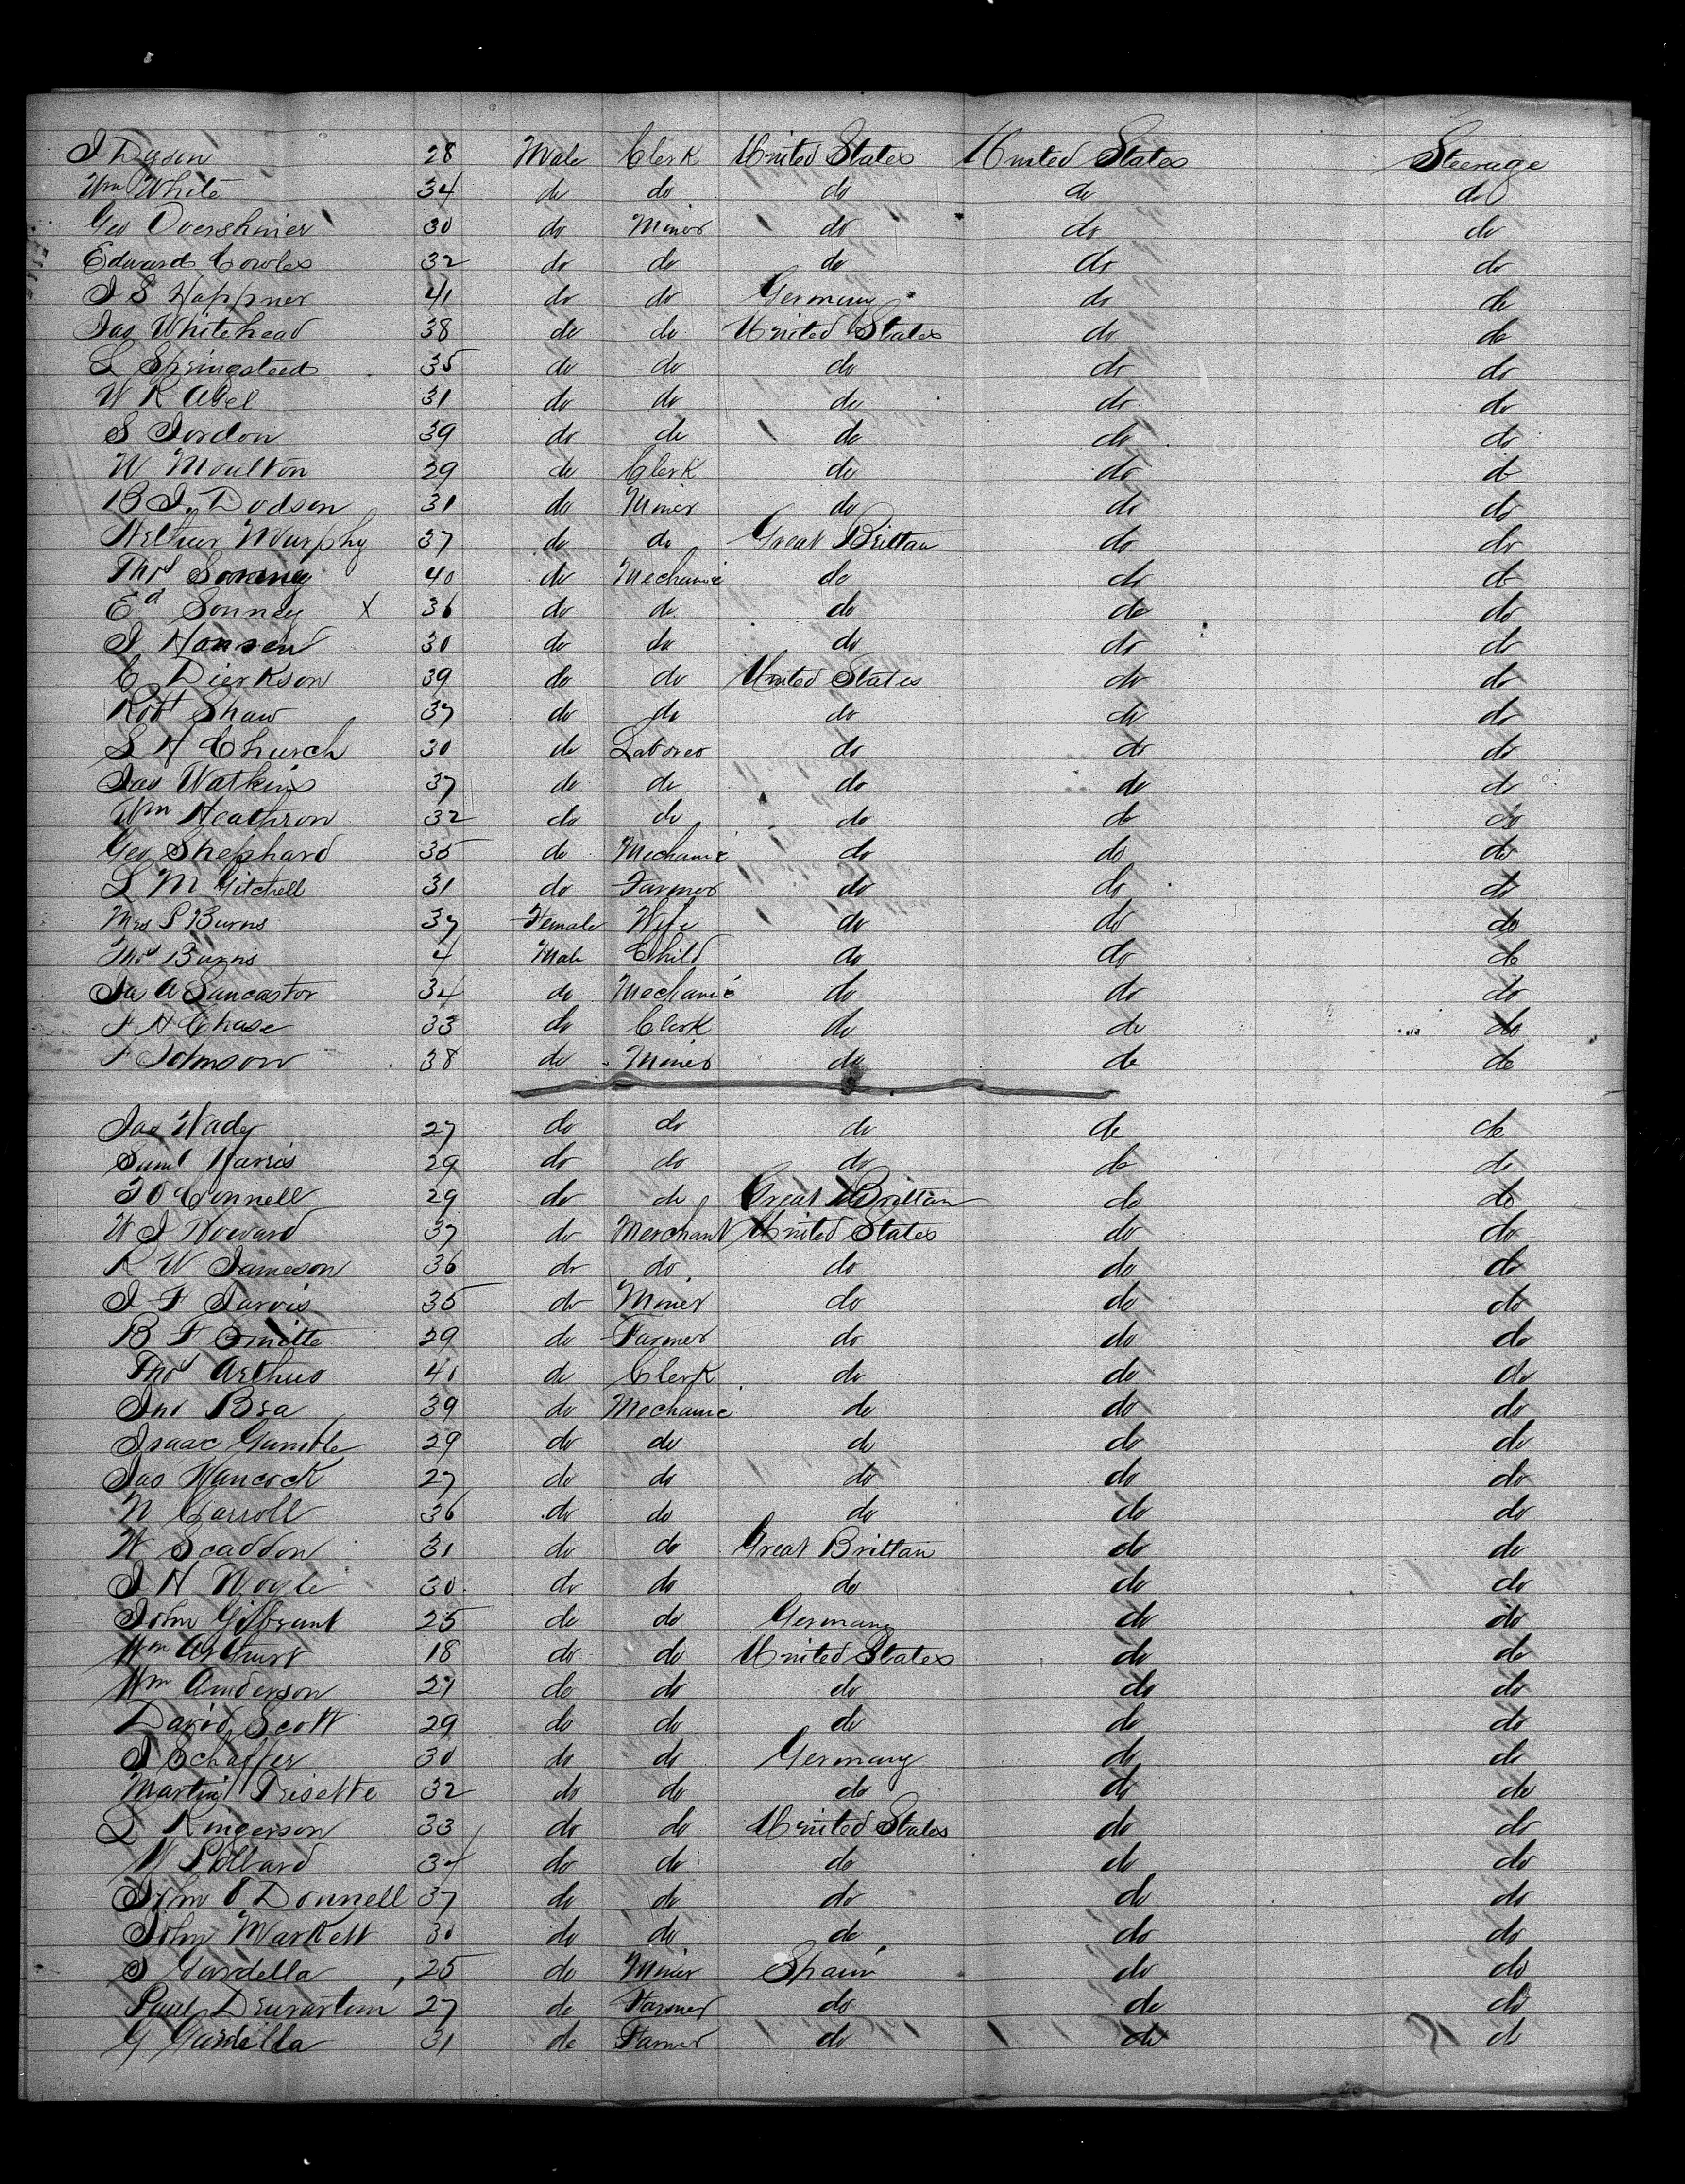 J Dyson 28 Male Clerk United States United States Steerage
Wm White 34 do do do do do
Geo Overshiner 30 do Miner do do do
Edward Cowles 32 do do do do do
J S Happner 41 do do Germany do do
Jas Whitehead 38 do do United States do do
L Springsteed 35 do do do do do
W R Abel 31 do do do do do
S Jordon 39 do do do do do
W Moulton 29 do Clerk do do do
B J. Dodson 31 do Miner do do do
Arthur Murphy 37 do do Great Brittan do do
Thos 40 do Mechanic do do do
Ed Sonney X 36 do do do do do
J Hansen 30 do do do do do
C Dierkson 39 do do United States do do
Robt Shaw 37 do do do do do
S H Church 30 do Laborer do do do
Jas Watkins 37 do do do do do
Wm Heathron 32 do do do do do
Geo Shephard 35 do Mechanic do do do
L M Gitchell 31 do Farmer do do do
Mrs P Burns 37 Female Wife do do do
Thos Burns 4 Male Child do do do
Jas A Lancastor 34 do Mechanic do do do
F H Chase 33 do Clerk do do do
F Johnson 38 do Miner do do do
Jas Wady 27 do do do do do
Saml Harris 29 do do do do do
T O Connell 29 do do Great Brittan do do
W J Howard 37 do Merchant United States do do
R W Jameson 36 do do do do do
J F Jarvis 35 do Miner do do do
B F 29 do Farmer do do do
Thos Arthur 41 do Clerk do do do
Jno Bra 39 do Mechanic do do do
Isaac Gamble 29 do do do do do
Jas Hancock 27 do do do do do
N Carroll 36 do do do do do
W Scaddon 31 do do Great Brittan do do
J H 30 do do do do do
John Gilbrant 25 do do Germany do do
Wm 18 do do United States do do
Wm Anderson 21 do do do do do
David Scott 29 do do do do do
J Schaffer 30 do do Germany do do
Martin Trisette 32 do do do do do
L Ringerson 33 do do United States do do
W Pollard 34 do do do do do
John O Donnell 37 do do do do do
John Markett 30 do do do do do
S Gardella 25 do Miner Spain do do
Paul 27 do Farmer do do do
G Gardella 31 do Farmer do do do